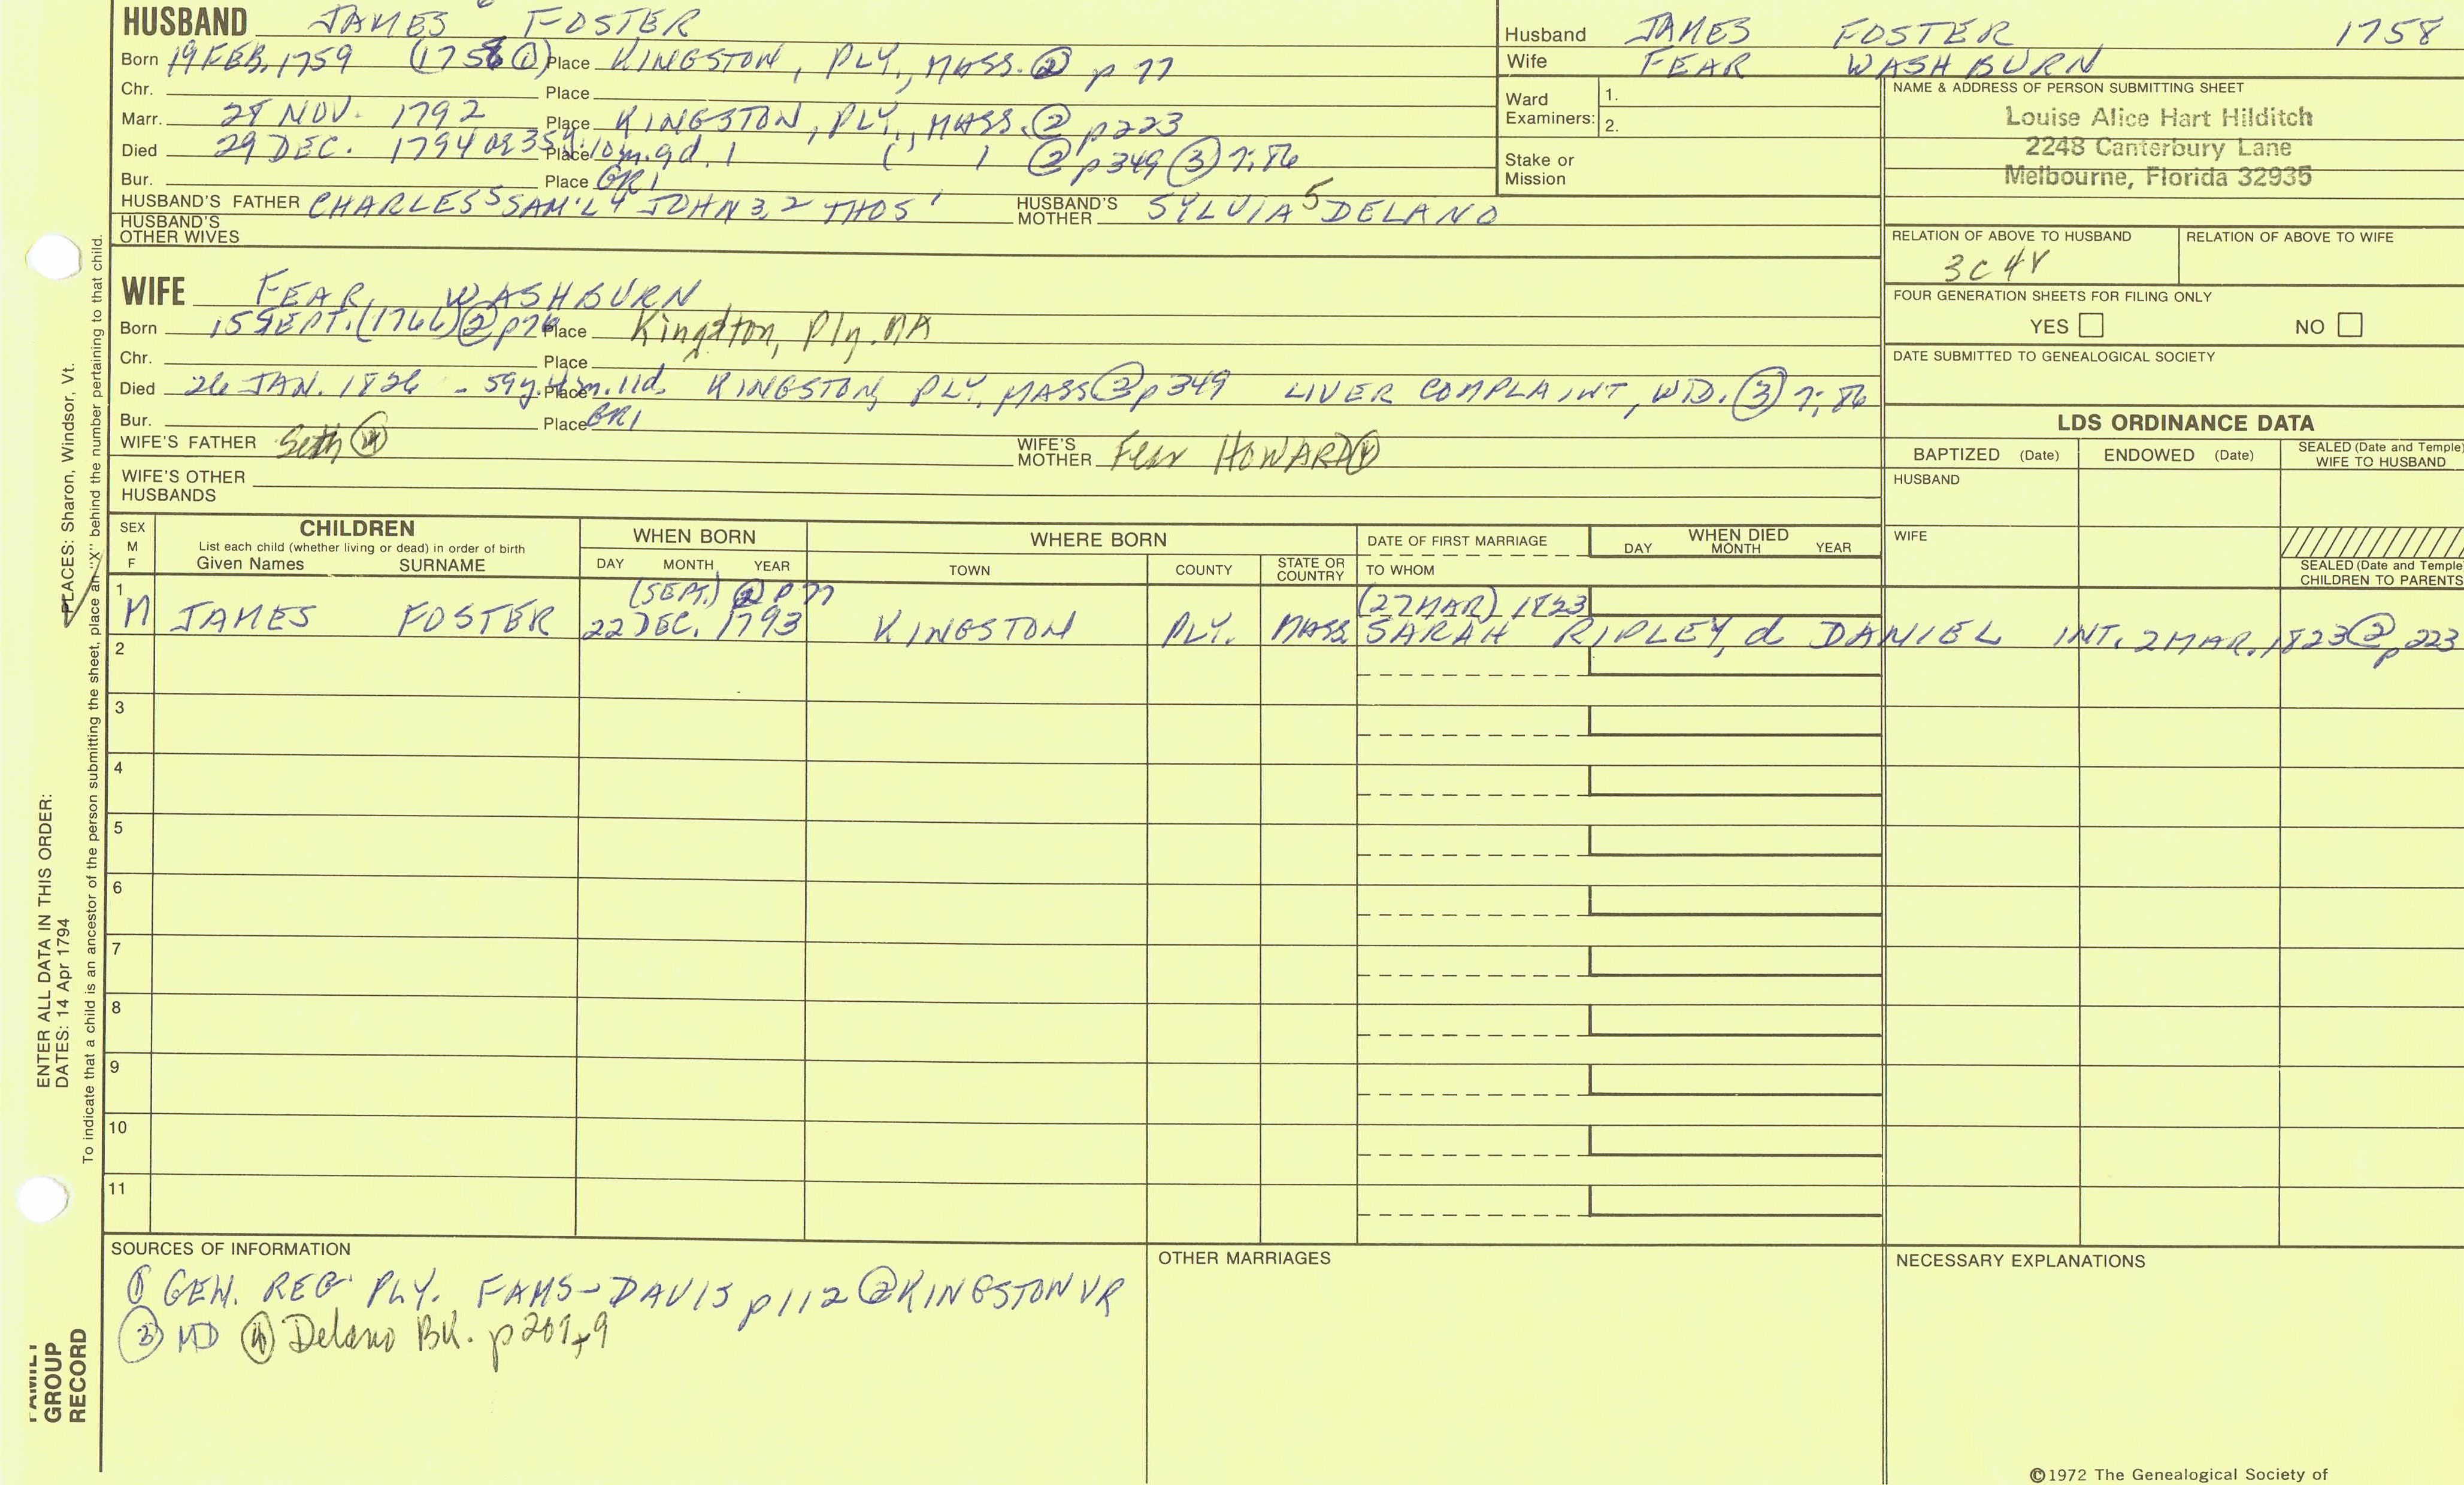 HUSBAND JAMES 6 FOSTER
Born 19 FEB. 1759 (1758 ①) Place KINGSTON, PLY., MASS. ② p 77
Chr. Place
Marr. 28 NOV. 1792 Place KINGSTON, PLY., MASS. ② p223
Died 29 DEC. 1794 ae 35y. 10m. 9d. Place ② p349 ③ 7:86
Bur. Place GR1
HUSBAND'S FATHER CHARLES5 SAM'L4 JOHN3,2 THOS1 HUSBAND'S MOTHER SYLVIA5 DELANO
HUSBAND'S OTHER WIVES
Husband JAMES FOSTER 1758
Wife FEAR WASHBURN
Ward Examiners: 1.
2.
Stake or Mission
NAME & ADDRESS OF PERSON SUBMITTING SHEET
Louise Alice Hart Hilditch
2248 Canterbury Lane
Melbourne, Florida 32935
RELATION OF ABOVE TO HUSBAND RELATION OF ABOVE TO WIFE
3C4r
FOUR GENERATION SHEETS FOR FILING ONLY
YES NO
DATE SUBMITTED TO GENEALOGICAL SOCIETY
WIFE FEAR WASHBURN
Born 15 SEPT. (1766) ② p76 Place Kingston, Ply. MA
Chr. Place
Died 26 JAN. 1826 - 59y. 4m. 11d. Place KINGSTON, PLY., MASS ② p349 LIVER COMPLAINT, WID. ③ 7:86
Bur. Place GR1
WIFE'S FATHER Seth ④ WIFE'S MOTHER Fear HOWARD ④
WIFE'S OTHER HUSBANDS
LDS ORDINANCE DATA
BAPTIZED (Date) ENDOWED (Date) SEALED (Date and Temple) WIFE TO HUSBAND
HUSBAND
WIFE
SEALED (Date and Temple CHILDREN TO PARENTS
SEX M F
CHILDREN
List each child (whether living or dead) in order of birth
Given Names SURNAME
WHEN BORN
DAY MONTH YEAR
WHERE BORN
TOWN COUNTY STATE OR COUNTRY
DATE OF FIRST MARRIAGE
TO WHOM
WHEN DIED
DAY MONTH YEAR
1 (SEPT.) ② p 77 (27 MAR) 1823
M JAMES FOSTER 22 DEC. 1793 KINGSTON PLY. MASS. SARAH RIPLEY, d DANIEL INT. 2 MAR. 1823 ② p 223
2
3
4
5
6
7
8
9
10
11
SOURCES OF INFORMATION
① GEN. REG. PLY. FAMS - DAVIS p112 ② KINGSTON VR
③ MD ④ Delano Bk. p
OTHER MARRIAGES
NECESSARY EXPLANATIONS
©1972 The Genealogical Society of
ENTER ALL DATA IN THIS ORDER:
DATES: 14 Apr 1794
PLACES: Sharon, Windsor, Vt.
To indicate that a child is an ancestor of the person submitting the sheet, place an "X" behind the number pertaining to that child.
FAMILY
GROUP
RECORD